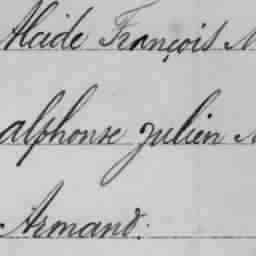 Alcide François
alphonse Julien
Armand.